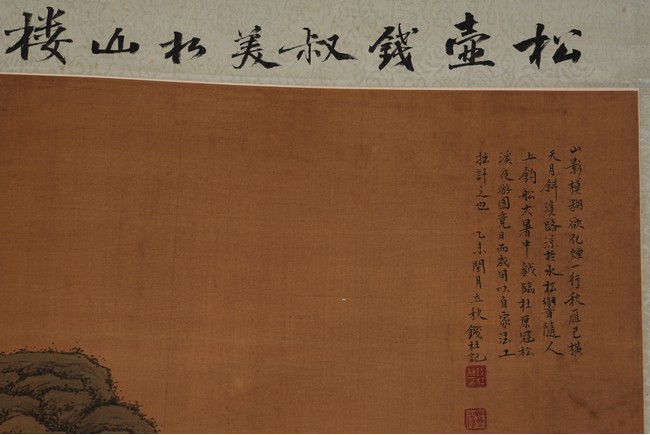 松壺錢叔美松山楼
山影模糊欲化煙一行秋雁已橫
天月斜溪路涼於水松響隨人
上釣船大暑中戲臨杜東原冠松
溪夜遊圖竟日而成用以自家法工
拙計之也 乙未閏月立秋錢杜記